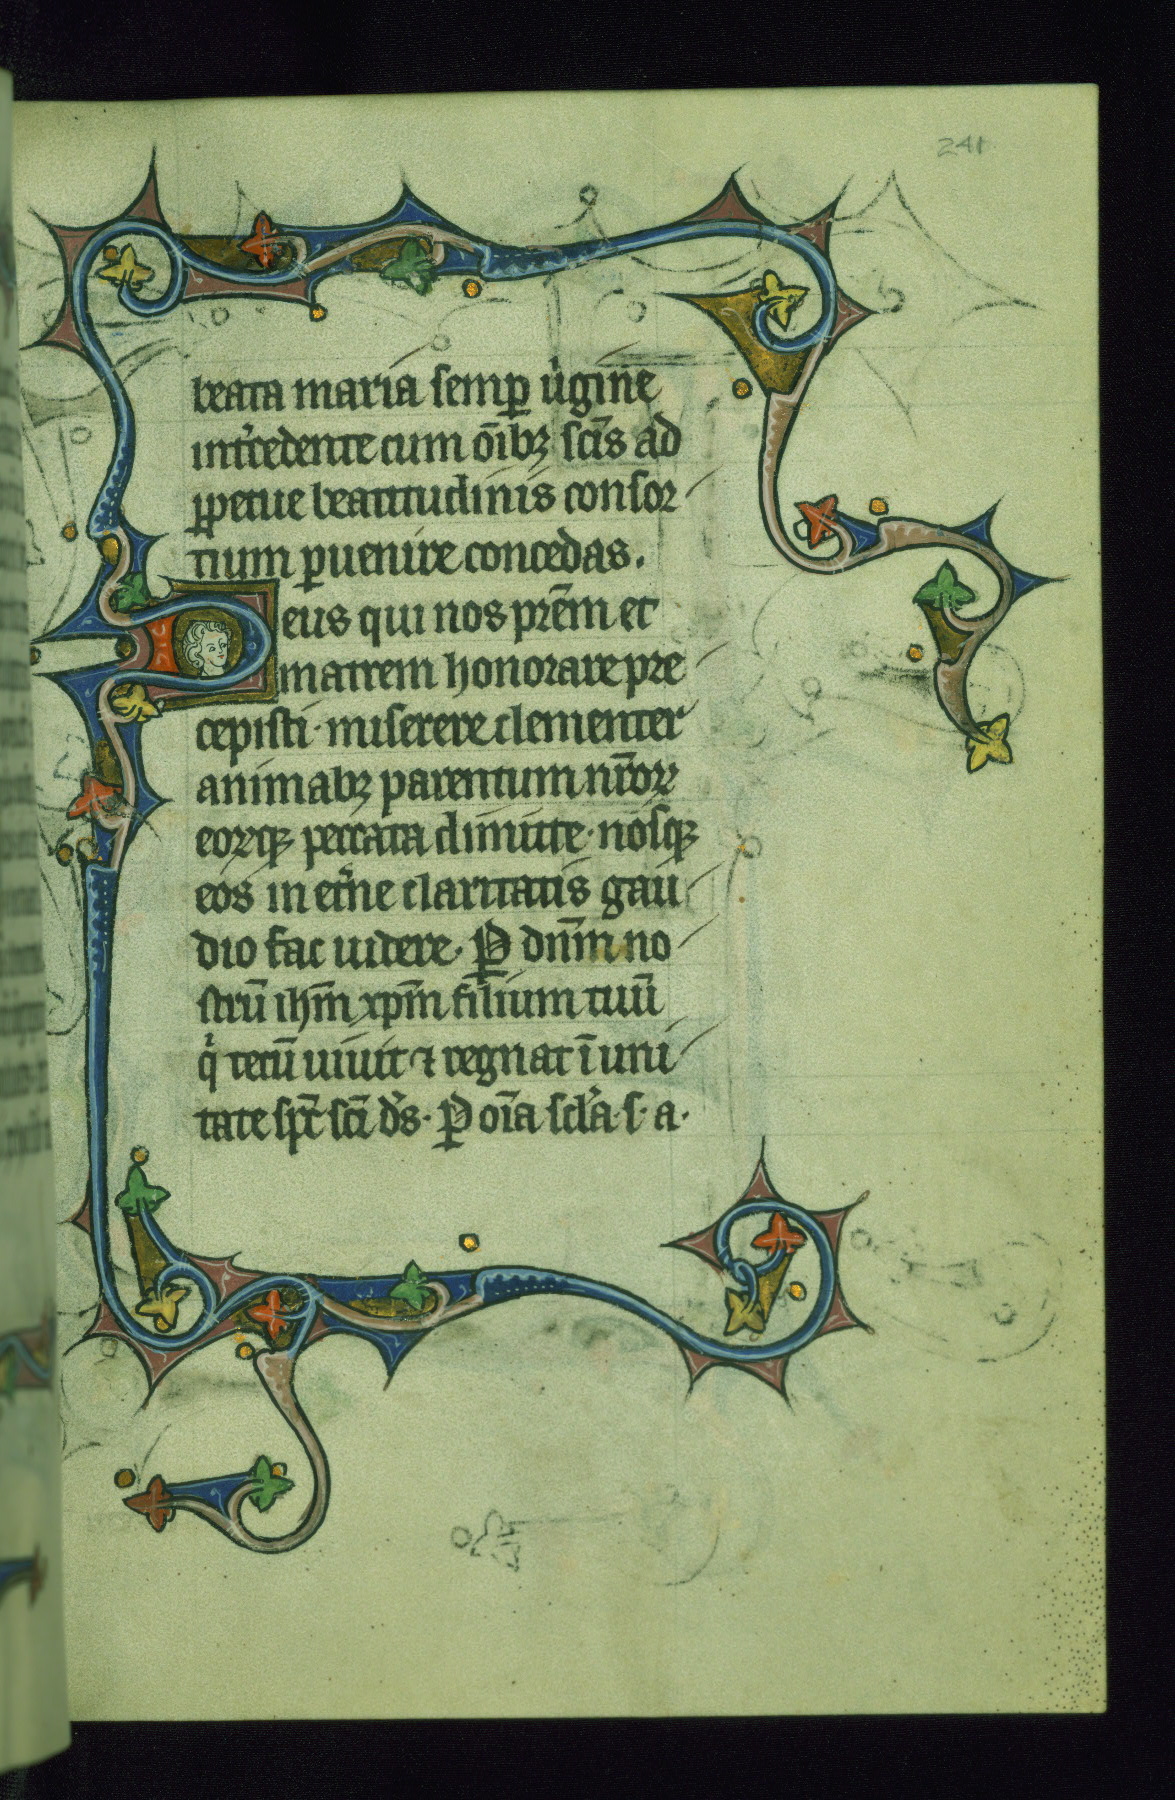 241
beata maria semꝑ ũgine
inꝉcedente cum õibꝫ sc̃is ad
ꝑpetue beatitudinis consor
tium ꝑuenire concedas.
Deus qui nos pr̃em et
matrem honorare pre
cepisti· miserere clementer
animabꝫ parentum nr̃oꝝ
eoꝝqꝫ peccata dimitte· nosqꝫ
eos in et̾ne claritatis gau
dio fac uidere. P̱ dñm no
strũ ih̃m xp̃m filium tuũ
qͥ tecũ uiuit ⁊ regnat ĩ uni
tate sp̃c sc̃i d̾s. P̱ oĩa scl̾a · s · a ·